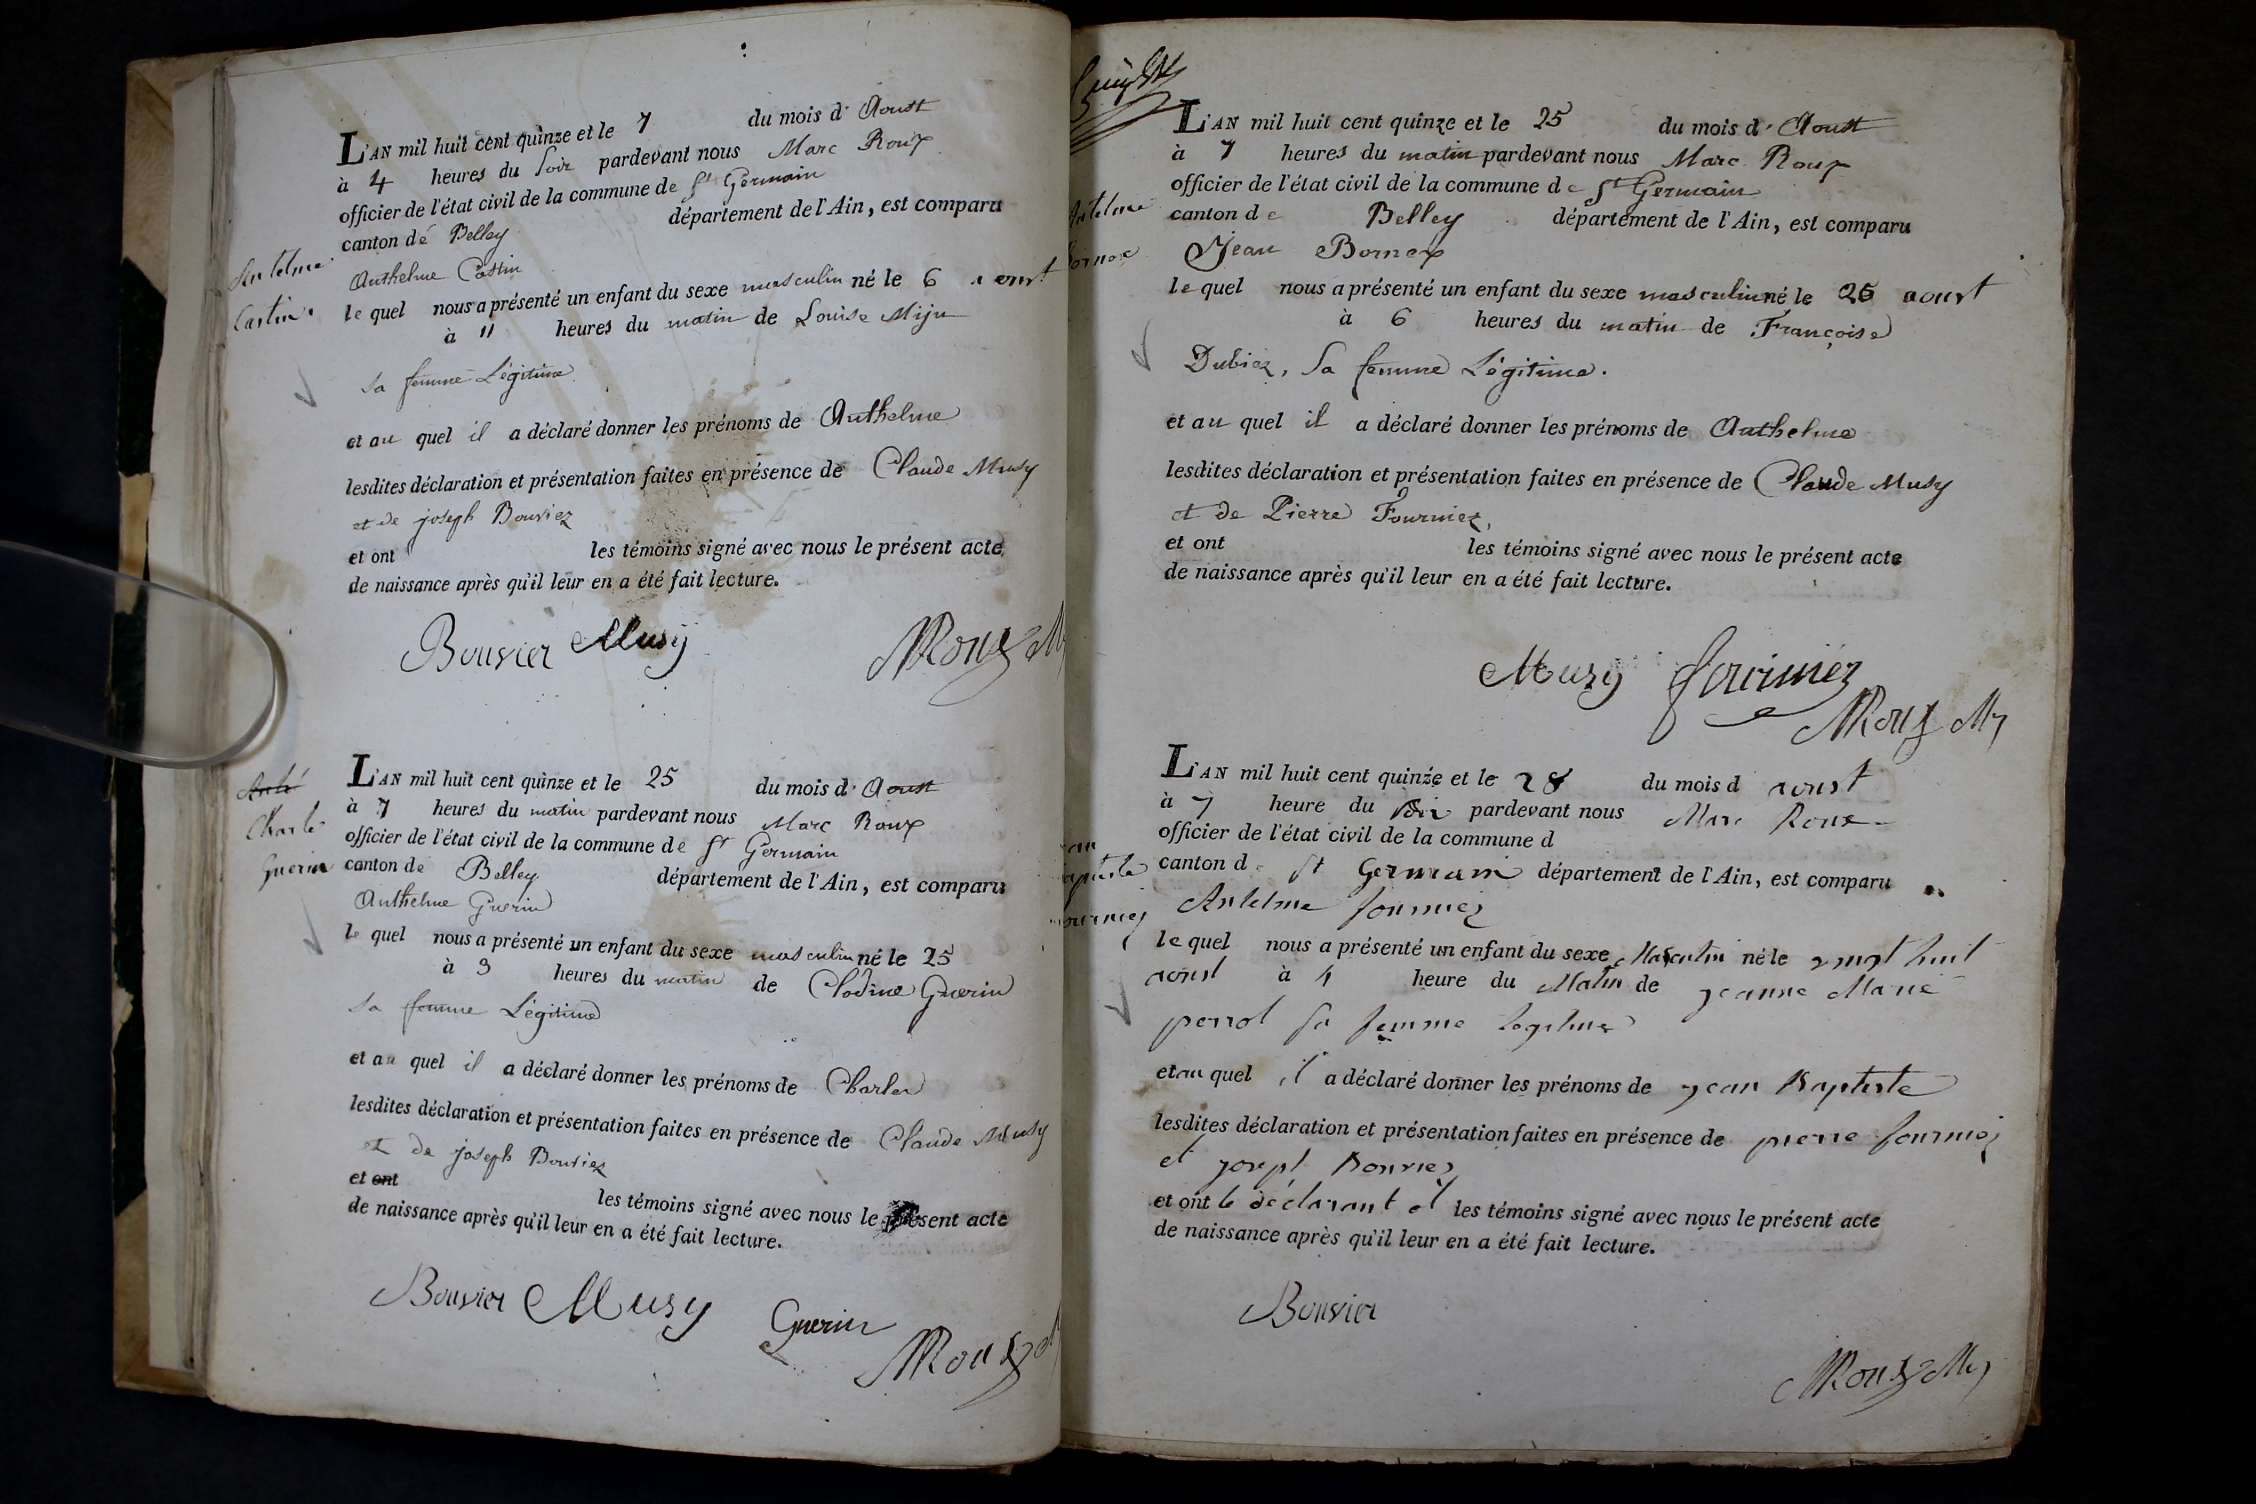 L'AN mil huit cent quinze et le 7 du mois d'Aoust
à 4 heures du Soir pardevant nous Marc Roux
officier de l'état civil de la commune de St Germain
canton de Belley département de l'Ain, est comparu
Anthelme Castin
Antelme
Castin
le quel nous a présenté un enfant du sexe masculin né le 6 aoust
à 11 heures du matin de Louise Miju
sa femme Légitime
et au quel il a déclaré donner les prénoms de Anthelme
lesdites déclaration et présentation faites en présence de Claude Musy
et de joseph Bouvier
et ont les témoins signé avec nous le présent acte
de naissance après qu'il leur en a été fait lecture.
Bouvier Musy MRoux
L'AN mil huit cent quinze et le 25 du mois d'Aoust
à 7 heures du matin pardevant nous Marc Roux
officier de l'état civil de la commune de St Germain
canton de Belley département de l'Ain, est comparu
Anthelme Guerin
Charle
Guerin
le quel nous a présenté un enfant du sexe masculin né le 25
à 3 heures du matin de Clodine Guerin
sa femme Légitime
et au quel il a déclaré donner les prénoms de Charles
lesdites déclaration et présentation faites en présence de Claude Musy
et de joseph Bouvier
et ont les témoins signé avec nous le présent acte
de naissance après qu'il leur en a été fait lecture.
Bouvier Musy Guerin MRoux
L'AN mil huit cent quinze et le 25 du mois d'Aoust
à 7 heures du matin pardevant nous Marc Roux
officier de l'état civil de la commune de St Germain
canton de Belley département de l'Ain, est comparu
Jean Bornex
Antelme
le quel nous a présenté un enfant du sexe masculin né le 25 aoust
à 6 heures du matin de Françoise
Dubiez, Sa femme Légitime.
et au quel il a déclaré donner les prénoms de Anthelme
lesdites déclaration et présentation faites en présence de Claude Musy
et de Pierre Fournier,
et ont les témoins signé avec nous le présent acte
de naissance après qu'il leur en a été fait lecture.
Musy fournier
MRoux
L'AN mil huit cent quinze et le 28 du mois d aoust
à 7 heure du soir pardevant nous Marc Roux
officier de l'état civil de la commune d
canton de St Germain département de l'Ain, est comparu
Antelme fournier
le quel nous a présenté un enfant du sexe Masculin né le vingt huit
aoust à 4 heure du Matin de jeanne Marie
perrot sa femme legitime
et au quel il a déclaré donner les prénoms de jean Baptiste
lesdites déclaration et présentation faites en présence de pierre fournier
et joseph Bouvier
et ont le déclarant et les témoins signé avec nous le présent acte
de naissance après qu'il leur en a été fait lecture.
Bouvier
MRoux